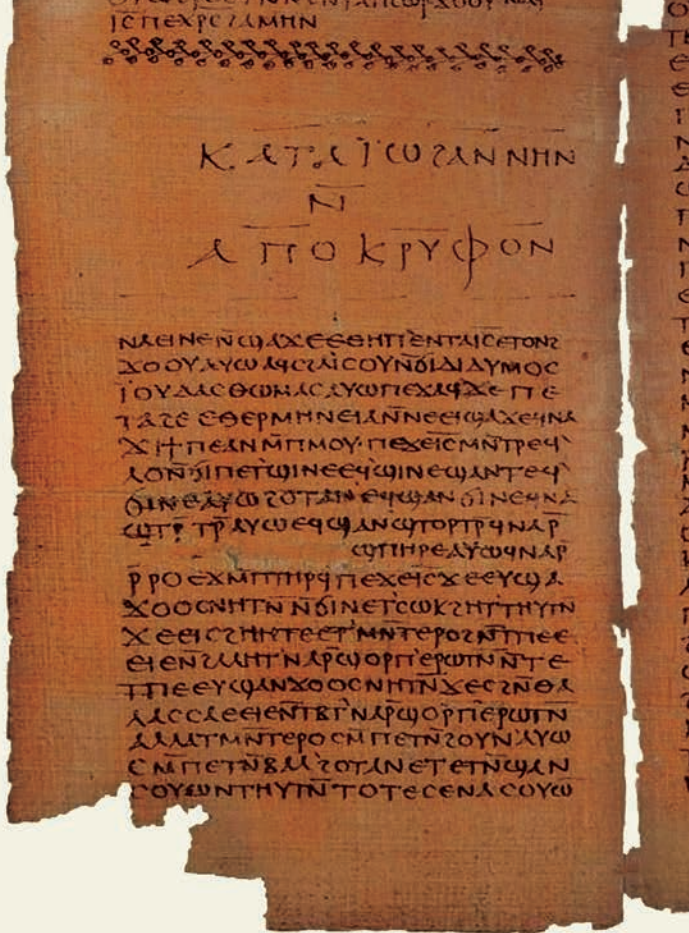 ⲓ̅ⲥ̅ ⲡⲉⲭⲣ̅ⲥ̅ ϩⲁⲙⲏⲛ
ⲕⲁⲧⲁ ⲓ̈ⲱϩⲁⲛⲛⲏⲛ
ⲛ̄
ⲁⲡⲟⲕⲣⲩⲫⲟⲛ
ⲛⲁⲉⲓⲛⲉⲛ̄ϣⲁϫⲉⲉⲑⲏⲡʼⲉⲛⲧⲁⲓ̅ⲥ̅ⲉⲧⲟⲛϩ
ϫⲟⲟⲩⲁⲩⲱⲁϥⲥϩⲁⲓ̈ⲥⲟⲩⲛ̄ϭⲓⲇⲓⲇⲩⲙⲟⲥ
ⲓ̈ⲟⲩⲇⲁⲥⲑⲱⲙⲁⲥⲁⲩⲱⲡⲉϫⲁϥϫⲉⲡⲉ
ⲧⲁϩⲉⲉⲑⲉⲣⲙⲏⲛⲉⲓⲁⲛ̄ⲛⲉⲉⲓϣⲁϫⲉϥⲛⲁ
ϫⲓϯⲡⲉⲁⲛⲙ̄ⲡⲙⲟⲩ·ⲡⲉϫⲉⲓ̅ⲥ̅ⲙⲛ̄ⲧⲣⲉϥʼ
ⲗⲟⲛ̄ϭⲓⲡⲉⲧϣⲓⲛⲉⲉϥϣⲓⲛⲉϣⲁⲛⲧⲉϥʼ
ϭⲓⲛⲉⲁⲩⲱϩⲟⲧⲁⲛⲉϥϣⲁⲛϭⲓⲛⲉϥⲛⲁ
ϣⲧⲣ̄ⲧⲣ̄ⲁⲩⲱⲉϥϣⲁⲛϣⲧⲟⲣⲧⲣ̄ϥⲛⲁⲣ̄
ϣⲡⲏⲣⲉⲁⲩⲱϥⲛⲁⲣ̄
ⲣ̄ⲣⲟⲉϫⲙ̄ⲡⲧⲏⲣϥⲡⲉϫⲉⲓ̅ⲥ̅ϫⲉⲉⲩϣⲁ
ϫⲟⲟⲥⲛⲏⲧⲛ̄ⲛ̄ϭⲓⲛⲉⲧʼⲥⲱⲕϩⲏⲧʼⲧⲏⲩⲧⲛ̄
ϫⲉⲉⲓⲥϩⲏⲏⲧⲉⲉⲧʼⲙⲛ̄ⲧⲉⲣⲟϩⲛ̄ⲧⲡⲉⲉ
ⲉⲓⲉⲛ̄ϩⲁⲗⲏⲧʼⲛⲁⲣ̄ϣⲟⲣⲡʼⲉⲣⲱⲧⲛ̄ⲛ̄ⲧⲉ
ⲧⲡⲉⲉⲩϣⲁⲛϫⲟⲟⲥⲛⲏⲧⲛ̄ϫⲉⲥϩⲛ̄ⲑⲁ
ⲗⲁⲥⲥⲁⲉⲉⲓⲉⲛ̄ⲧⲃⲧʼⲛⲁⲣ̄ϣⲟⲣⲡʼⲉⲣⲱⲧⲛ̄
ⲁⲗⲗⲁⲧⲙⲛ̄ⲧⲉⲣⲟⲥⲙ̄ⲡⲉⲧⲛ̄ϩⲟⲩⲛʼⲁⲩⲱ
ⲥⲙ̄ⲡⲉⲧⲛ̄ⲃⲁⲗʼϩⲟⲧⲁⲛⲉⲧⲉⲧⲛ̄ϣⲁⲛ
ⲥⲟⲩⲱⲛⲧⲏⲩⲧⲛ̄ⲧⲟⲧⲉⲥⲉⲛⲁⲥⲟⲩⲱ